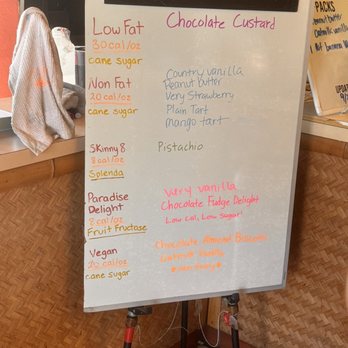 Low Fat
30 cal/oz
cane sugar
Chocolate Custard
Non Fat
20 cal/oz
cane sugar
Country vanilla
Peanut Butter
Very Strawberry
Plain Tart
Mango tart
Skinny 8
8 cal/oz
Splenda
Pistachio
Paradise
Delight
8 cal/oz
Fruit Fructose
Very vanilla
Chocolate Fudge Delight
Low Cal, Low Sugar!
Vegan
cal/oz
cane sugar
Chocolate Almond
PACKS